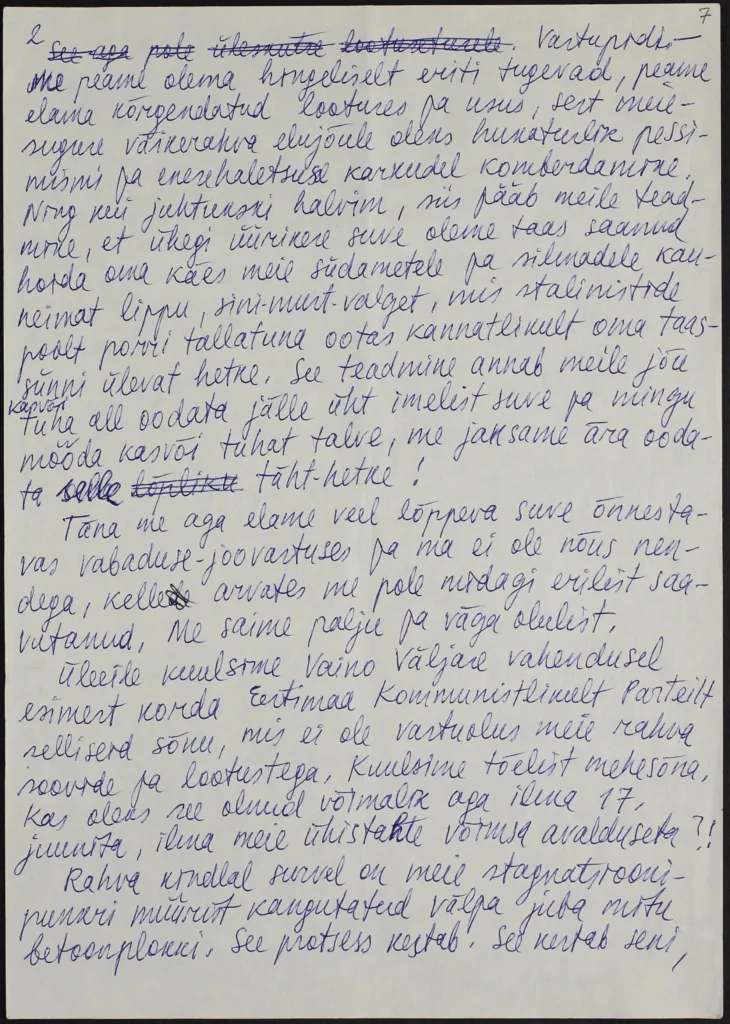 7
2 See aga pole üleskutse lootusetusele. Vastupidi –
me peame olema hingeliselt eriti tugevad, peame
elama kõrgendatud lootuses ja usus, sest meie-
suguse väikerahva elujõule oleks hukatuslik pessi-
mismi ja enesehaletsuse karkudel komberdamine.
Ning kui juhtukski halvim, siis jääb meile tead-
mine, et ühegi üürikese suve oleme taas saanud
hoida oma käes meie südametele ja silmadele kau-
neimat lippu, sini-must-valget, mis stalinistide
poolt porri tallatuna ootas kannatlikult oma taas-
sünni ülevat hetke. See teadmine annab meile jõu
kasvõi
tuha all oodata jälle üht imelist suve ja mingu
mööda kasvõi tuhat talve, me jaksame ära ooda-
ta selle lõpliku täht-hetke!
Täna me aga elame veel lõppeva suve õnnesta-
vas vabaduse-joovastuses ja ma ei ole nõus nen-
dega, kelle arvates me pole midagi erilist saa-
vutanud. Me saime palju ja väga olulist.
Üleeile kuulsime Vaino Väljase vahendusel
esimest korda Eestimaa Kommunistlikult Parteilt
selliseid sõnu, mis ei ole vastuolus meie rahva
soovide ja lootustega. Kuulsime tõelist mehesõna.
Kas oleks see olnud võimalik aga ilma 17.
juunita, ilma meie ühistahte võimsa avalduseta?!
Rahva kindlal survel on meie stagnatsiooni-
punkri müürist kangutatud välja juba mitu
betoonplokki. See protsess kestab. See kestab seni,